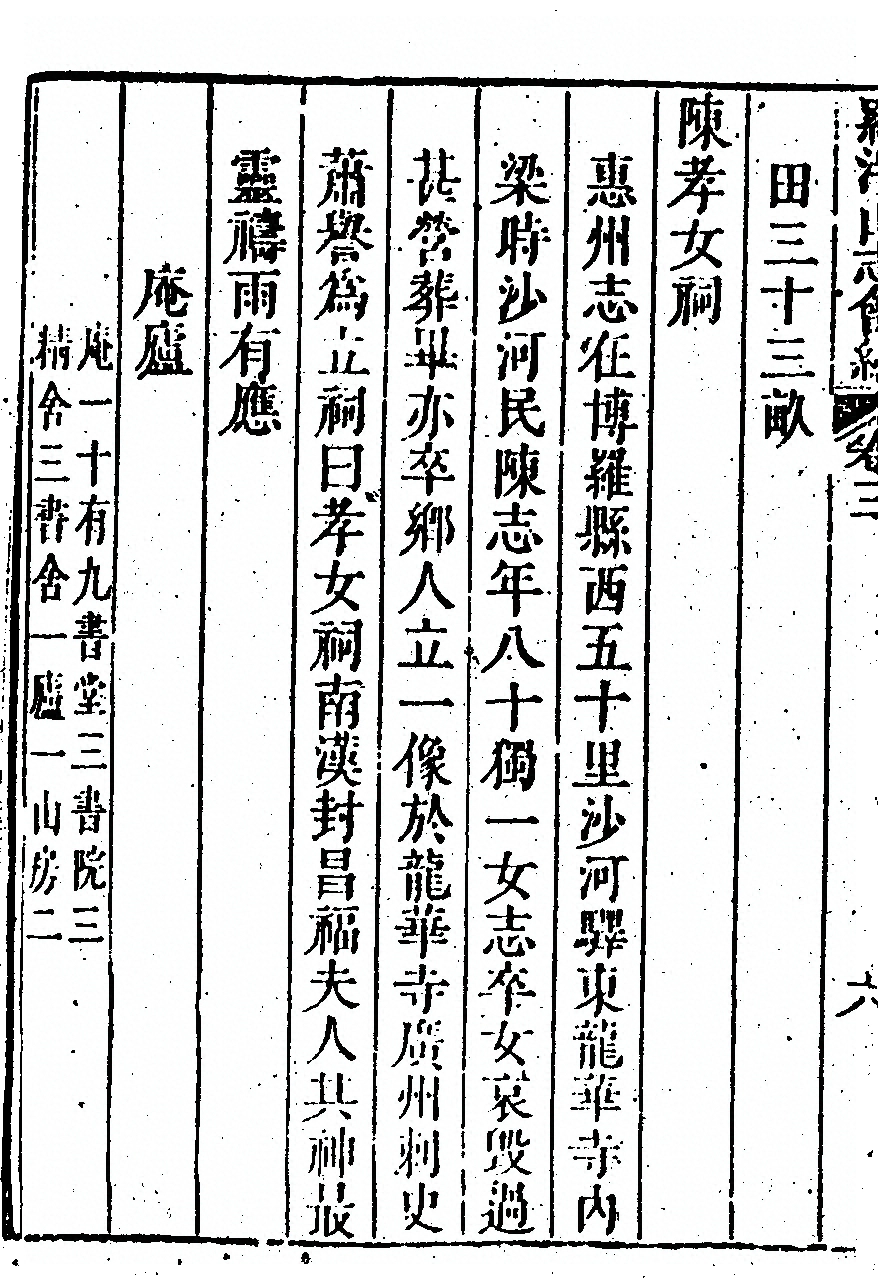 羅浮山志會編 卷三 六
田三十三畝
陳孝女祠
惠州志在博羅縣西五十里沙河驛東龍華寺內
梁時沙河民陳志年八十獨一女志卒女哀毀過
甚營葬畢亦卒鄉人立一像於龍華寺廣州刺史
蕭譽為立祠曰孝女祠南漢封昌福夫人其神最
靈禱雨有應
庵廬
庵一十有九書堂三書院三
精舍三書舍一廬一山房二